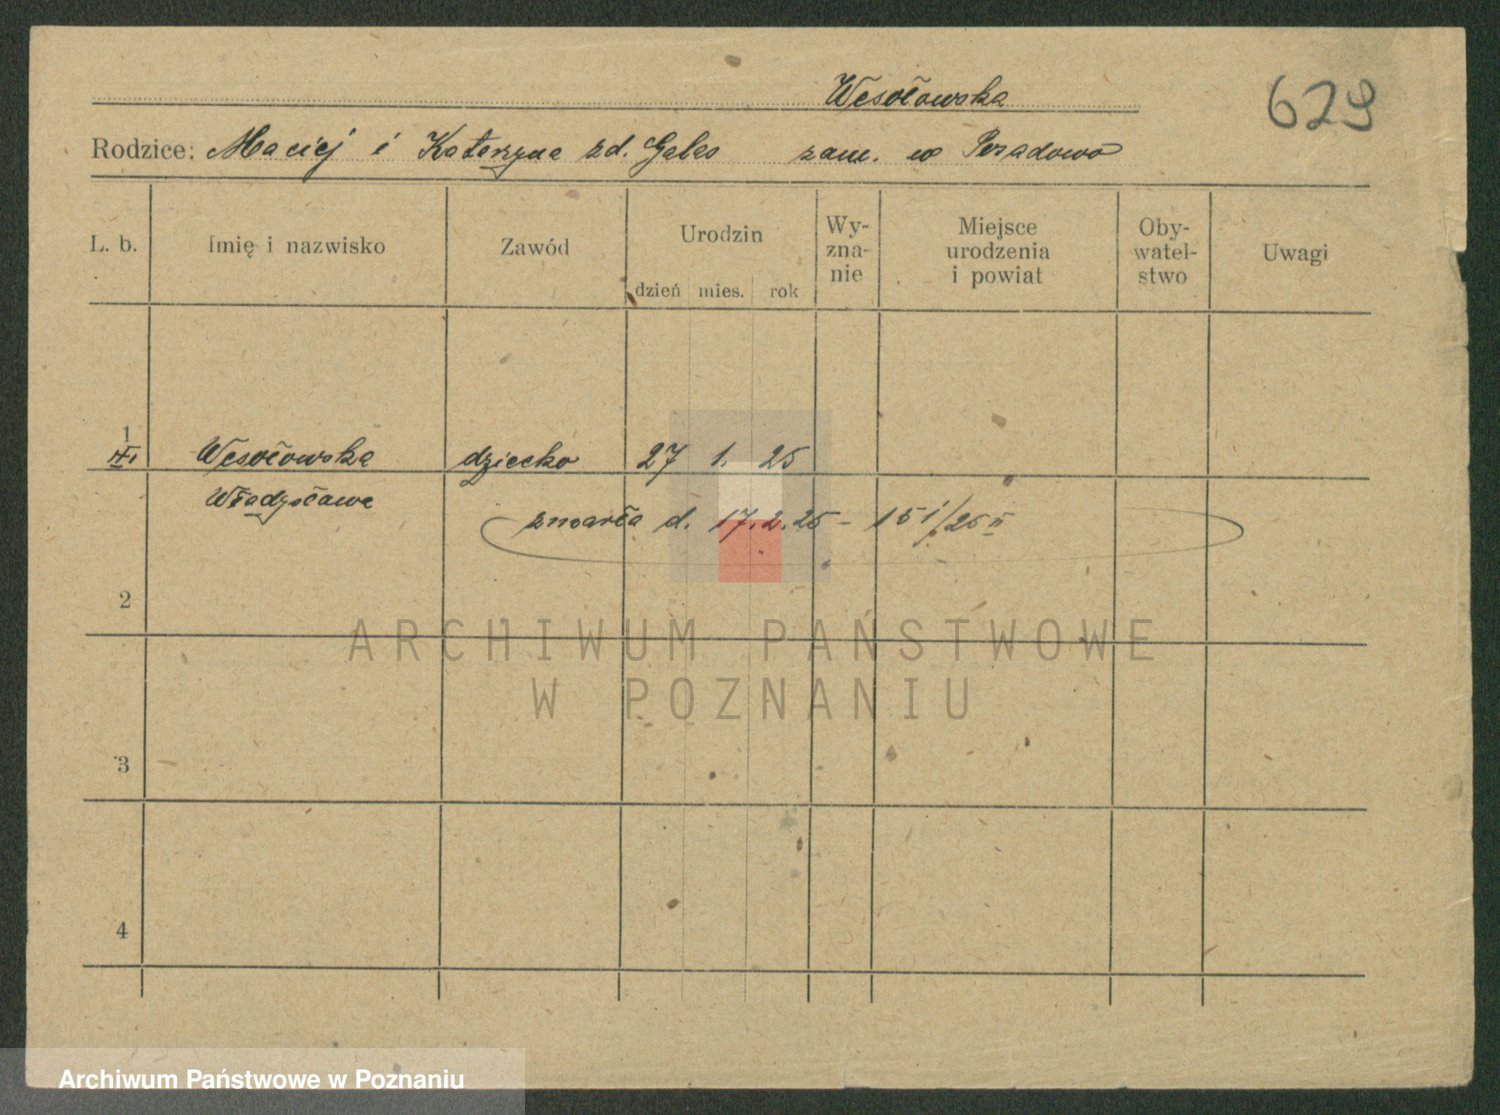 Wesołowska
629
Rodzice: Maciej i Katarzyna zd. Galas zam. w
L. b.
Imię i nazwisko
Zawód
Urodzin
dzień mies. rok
Wy-
zna-
nie
Miejsce
urodzenia
i powiat
Oby-
watel-
stwo
Uwagi
1
Wesołowska dziecko 27 1. 25
Władysława
zmarła d. 17.2.25 – 151/25 II
2
ARCHIWUM PAŃSTWOWE
W POZNANIU
3
4
Archiwum Państwowe w Poznaniu